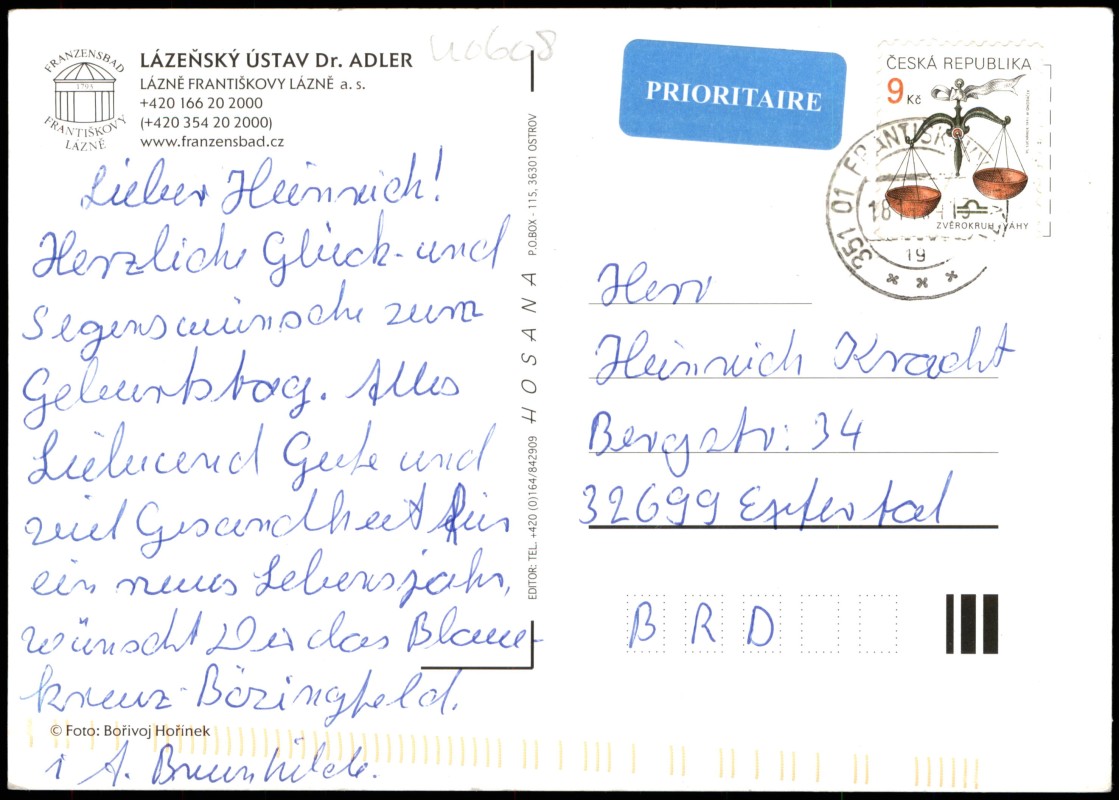 FRANZENSBAD
1793
FRANTIŠKOVY
LÁZNĚ
LÁZEŇSKÝ ÚSTAV Dr. ADLER
LÁZNĚ FRANTIŠKOVY LÁZNĚ a. s.
+420 166 20 2000
(+420 354 20 2000)
www.franzensbad.cz
Lieber Heinrich!
Herzliche Glück- und
Segenswünsche zum
Geburtstag. Alles
Liebe und Gute und
viel Gesundheit für
ein neues Lebensjahr,
wünscht Dir das Blaue-
kreuz-Bözingfeld.
© Foto: Bořivoj Hořínek
i A. Brunhilde.
EDITOR: TEL. +420 (0)164/842909 HOSANA P.O.BOX - 115, 36301 OSTROV
PRIORITAIRE
ČESKÁ REPUBLIKA
9 Kč
ZVĚROKRUH - VÁHY
351 01
19
Herr
Heinrich Kracht
Bergstr. 34
32699 Extertal
BRD